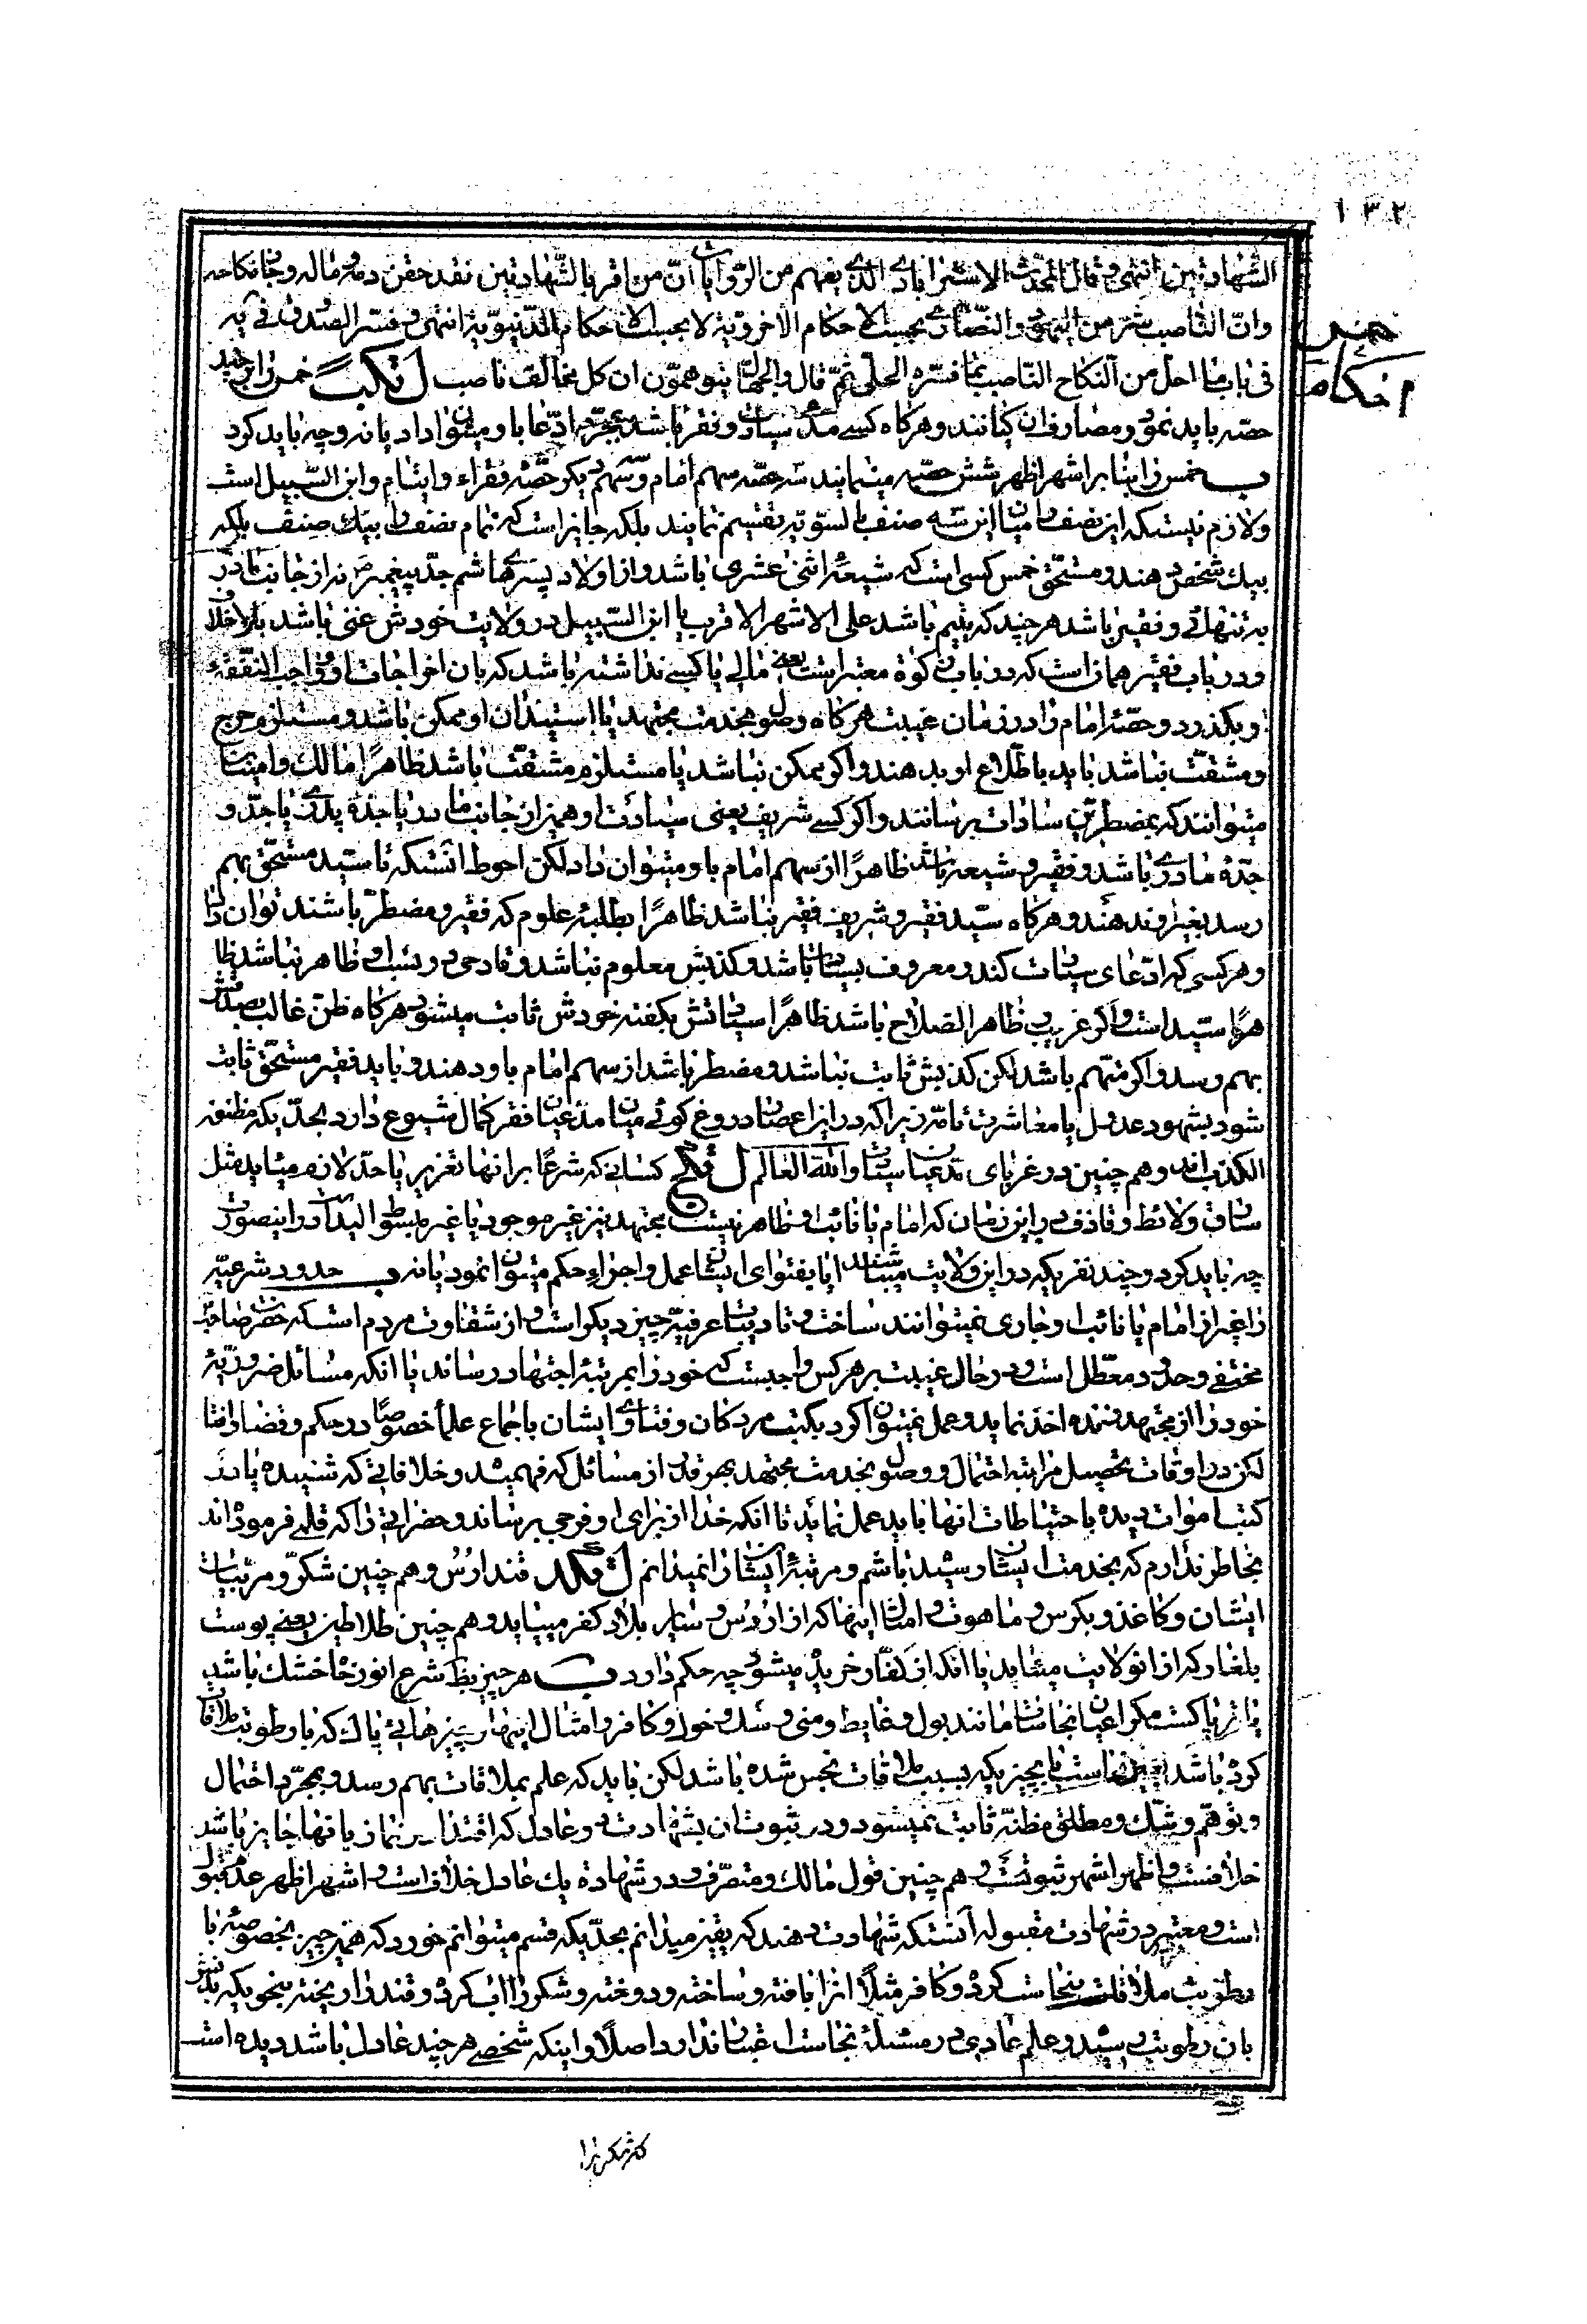 ۱۳۲
الشهادتین انتهی و قال المحدث الاسترابادی الذی یفهم من الروایات ان من اقر بالشهادتین فقد حقن دمه و ماله و جاز نکاحه
و ان الناصب شر من الیهود و النصاری بحسب الاحکام الأخرویة لا بحسب الاحکام الدنیویة انتهی و فسر الصدوق فی یه
خمس
احکام
فی باب ما احل من النکاح الناصب بما فسره الحلی ثم قال و الجهال یتوهمون ان کل مخالف ناصب خمس را چند
حصه باید نمود و مصارف ان کیانند و هرکاه کسی مدعی سیادت و فقر باشد بمجرد ادعا باو میتوان داد یا نه و چه باید کرد
خمس را بنا بر اشهر اظهر شش حصه مینمایند سه حصه سهم امام و سهم دیکر حصه فقراء و ایتام و ابن السبیل است
و لازم نیست که این نصف را میان این سه صنف بالسویه تقسیم نمایند بلکه جایز است که تمام نصف را بیک صنف بلکه
بیک شخص دهند و مستحق خمس کسی است که شیعه اثنی عشری باشد و از اولاد پسری هاشم جد پیغمبر ص نه از جانب مادر
به تنهائی و فقیر باشد هر چند که یتیم باشد علی الاشهر الاقرب یا ابن السبیل در ولایت خودش غنی باشد بلا خلاف
و در باب فقیر همان است که در باب زکوة معتبر است یعنی مالی یا کسبی نداشته باشد که بان اخراجات او و واجب النفقه
او بکذرد و حصه امام را در زمان غیبت هرکاه وصول بخدمت مجتهد یا استیذان او ممکن باشد و مستلزم حرج
و مشقت نباشد باید باطلاع او بدهند و اکر ممکن نباشد یا مستلزم مشقت باشد ظاهرا مالک و امینان
میتوانند که بمضطرین سادات برسانند و اکر کسی شریف یعنی سیادت او همین از جانب مادر یا جده پدری یا جد و
جده مادری باشد و فقیر و شیعه باشد ظاهرا از سهم امام باو میتوان داد لکن احوط انستکه تا سید مستحق بهم
رسد بغیر او ندهند و هرکاه سید فقیر و شریف فقیر نباشد ظاهرا بطلبه علوم که فقیر و مضطر باشند توان داد
و هر کسی که ادعای سیادت کند و معروف بسیادت باشد و کذبش معلوم نباشد و قادحی در نسب او ظاهر نباشد ظا
هرا سید است و اکر غریب و ظاهر الصلاح باشد ظاهرا سیادتش بکفته خودش ثابت میشود هرکاه ظن غالب بصدقش
بهم رسد و اکر متهم باشد لکن کذبش ثابت نباشد و مضطر باشد از سهم امام باو دهند و باید فقیر مستحق ثابت
شود بشهود عدول یا معاشرت تامه زیرا که در این اعصار دروغ کوئی میان مدعیان فقر کمال شیوع دارد بحدیکه مظنه
الکذب اند و هم چنین در غربای مدعیان سیادت و الله العالم کسانی که شرعا بر انها تغزیر یا حد لازم میاید مثل
سارق و لائط و قاذف در این زمان که امام یا نائب او ظاهر نیست مجتهد نیز غیر موجود یا غیر مبسوط الید است در اینصورت
چه باید کرد و چند نفریکه در این ولایت میباشند ایا بفتوای ایشان عمل و اجراء حکم میتوان نمود یا نه حدود شرعیه
را غیر از امام یا نائب او جاری نمیتوانند ساخت و تادیبات عرفیه چیز دیکر است و از شقاوت مردم استکه حضرت صاحب
مختفی و حدود معطل است و در حال غیبت بر هر کس واجبست که خود را بمرتبه اجتهاد رساند یا انکه مسائل ضروریه
خود را از مجتهد زنده اخذ نماید و عمل نمیتوان کرد بکتب مردکان و فتاوی ایشان باجماع علما خصوصا در حکم و قضا و افتا
لکن در اوقات تحصیل مراتبه احتمال و وصول بخدمت مجتهد بهر قدر از مسائل که فهمیده و خلافاتی که شنیده یا در
کتب اموات دیده باحتیاطات انها باید عمل نماید تا انکه خدا از برای او فرجی برساند و حضراتی را که قلمی فرموده اند
بخاطر ندارم که بخدمت ایشان رسیده باشم و مرتبه ایشان را نمیدانم قند ارُس و هم چنین شکر و مربیات
ایشان و کاغذ و بکرس و ماهوت و امثال اینها که از ارُوس و سایر بلاد کفر میاید و هم چنین طلاطین یعنی پوست
بلغار که از انولایت میاید یا انکه از کفار خریده میشود چه حکم دارد هر چیز بظاهر شرع انور خواه خشک باشد
یا تر پاکست مکر اعیان نجاسات مانند بول و غایط و منی و سک و خوک و کافر و امثال اینها و چیزهائی پاک که با رطوبت ملاقات
کرده باشد بعین نجاست یا بچیزیکه بسبب ملاقات نجس شده باشد لکن باید که علم بملاقات بهم رسد و بمجرد احتمال
و توهم و شک و مطلق مظنه ثابت نمیشود و در ثبوت ان بشهادت دو عادل که اقتدا در نماز بانها جایز باشد
خلافست و اظهر اشهر ثبوتست و هم چنین قول مالک و متصرف و در شهاده یک عادل خلاف است و اشهر اظهر عدم قبول
است و معتبر در شهادت مقبوله انستکه شهادت دهند که یقین میدانم بحدیکه قسم میتوانم خورد که همین چیز بخصوصه با
رطوبت ملاقات بنجاست کرده و کافر مثلا انرا بافته و ساخته و دوخته و شکر را اب کرده و قند را ریخته بنحویکه بدنش
بان رطوبت رسیده و علم عادی در مسئله نجاست اعتبار ندارد اصلا و اینکه شخصی هر چند عادل باشد دیده است